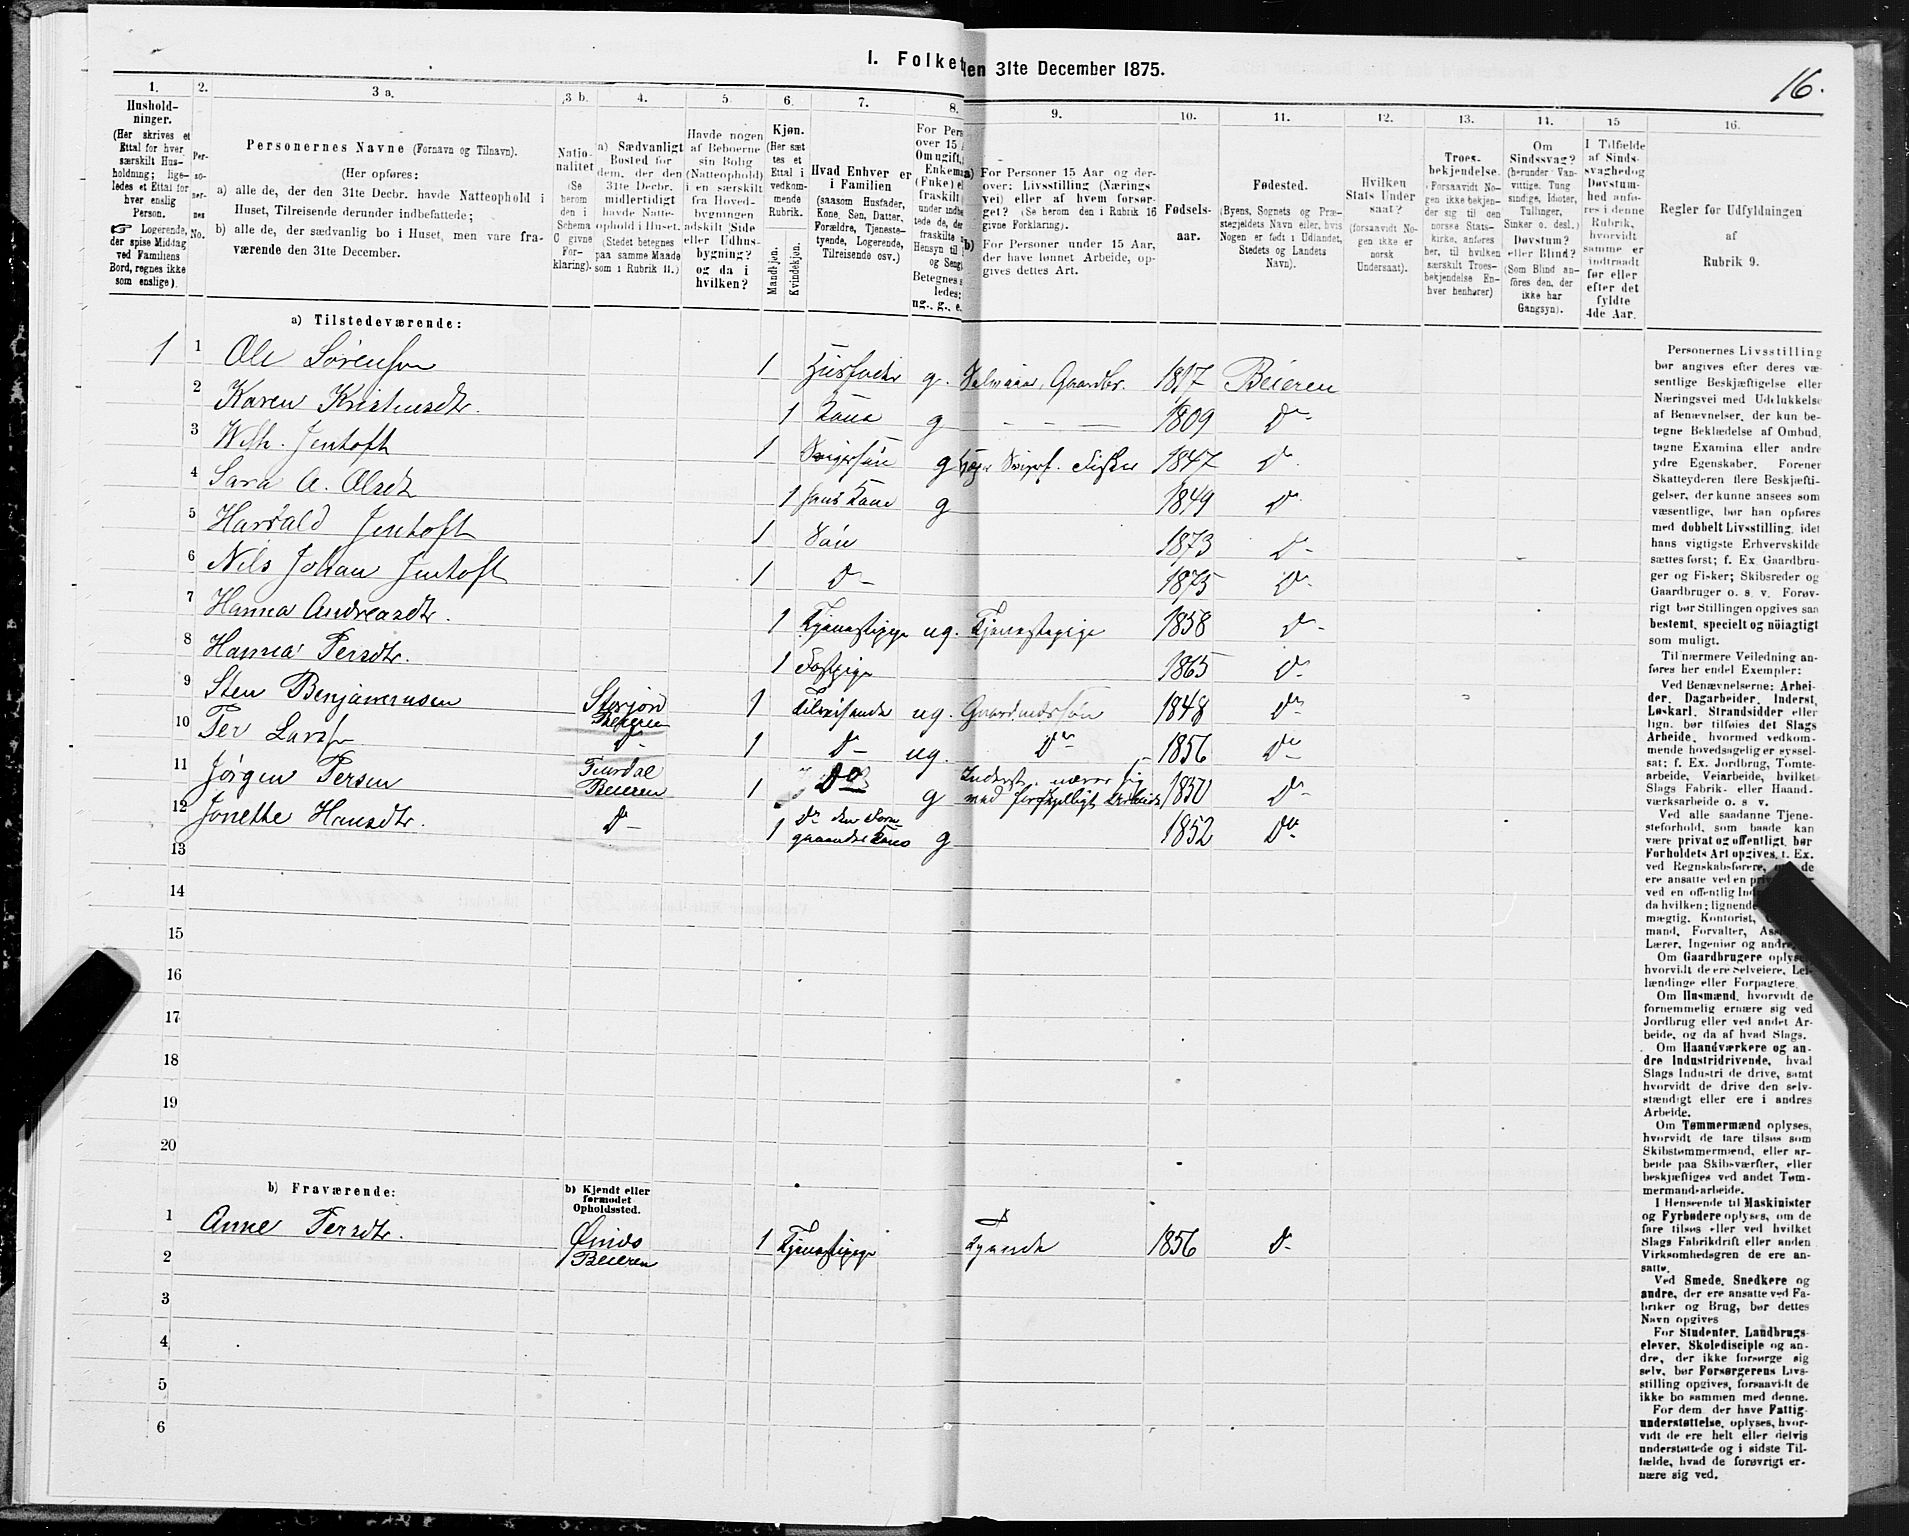 I. Folket
den 31te December 1875.
16.
1.
2.
3 a.
3 b.
4.
5.
6.
7.
8.
9.
10.
11.
12.
13.
14.
15
16.
Hushold-
ninger.
(Her skrives et
Ettal for hver
særskilt Hus-
holdning; lige-
ledes et Ettal for
hver enslig
Person.
☞ Logerende,
der spise Middag
ved Familiens
Bord, regnes ikke
som enslige).
Per-
so-
ner-
nes
No.
Personernes Navne (Fornavn og Tilnavn).
(Her opføres:
a) alle de, der den 31te Decbr. havde Natteophold i
Huset, Tilreisende derunder indbefattede;
b) alle de, der sædvanlig bo i Huset, men vare fra-
værende den 31te December.
Natio-
nalitet
(Se
herom
den i
Schema
C givne
For-
klaring).
a) Sædvanligt
Bosted for
dem, der den
31te Decbr.
midlertidigt
havde Natte-
ophold i Huset.
(Stedet betegnes
paa samme Maade
som i Rubrik 11.)
Havde nogen
af Beboerne
sin Bolig
(Natteophold)
i en særskilt
fra Hoved-
bygningen
adskilt Side
eller Udhus-
bygning?
og da i
hvilken?
Kjøn.
(Her sæt
tes et
Ettal i
vedkom-
mende
Rubrik.
Mandkjøn.
Kvindekjøn.
Hvad Enhver er
i Familien
(saasom Husfader,
Kone, Søn, Datter,
Forældre, Tjeneste-
tyende, Logerende,
Tilreisende osv.)
For Pers
over 15 A
Om ugift,
Enkema
(Enke) el
fraskilt
under indbe
tede de, der
fraskilte
Hensyn til
og Seng
Betegnes s
ledes:
ug., g., e.
a) For Personer 15 Aar og der-
over: Livsstilling (Nærings
vei) eller af hvem forsør-
get? (Se herom den i Rubrik 16
givne Forklaring).
b) For Personer under 15 Aar,
der have lønnet Arbeide, op-
gives dettes Art.
Fødsels-
aar.
Fødested.
(Byens, Sognets og Præ-
stegjeldets Navn eller, hvis
Nogen er født i Udlandet,
Stedets og Landets
Navn).
Hvilken
Stats Under
saat?
(forsaavidt No-
gen ikke er
norsk
Undersaat).
Troes-
bekjendelse.
(Forsaavidt No-
gen ikke bekjen-
der sig til den
norske Stats-
kirke, anføres
her, til hvilken
særskilt Troes-
bekjendelse En-
hver henhører)
Om
Sindssvag?
(herunder Van-
vittige, Tung
sindige, Idioter,
Tullinger,
Sinker o. desl.)
Døvstum?
eller Blind?
(Som Blind an-
føres den, der
ikke har
Gangsyn).
I Tilfælde
af Sinds-
svaghed og
Døvstum-
hed anfø-
res i denne
Rubrik,
hvorvidt
samme er
indtraadt
før eller
efter det
fyldte
4de Aar.
Regler for Udfyldningen
af
Rubrik 9.
a) Tilstedeværende:
1 1 Ole Sørensen 1 Husfader g. Selveier, Gaardbr. 1817 Beieren
2 Karen Kristensdtr. 1 Kone g — — — 1809 Do
3 Wilh. Jentoft 1 Svigersøn g Svigerf. Fisker 1847 Do
4 Sara A. Olsdtr 1 hans Kone g 1849 Do
5 Harald Jentoft 1 Søn 1873 Do
6 Nils Johan Jentoft 1 Do 1875 Do
7 Hanna Andreasdtr. 1 Tjenestepige ug. Tjenestepige 1858 Do
8 Hanna Persdtr. 1 Fostpige 1865 Do
9 Sten Benjaminsen Storjord Beieren 1 Tilreisende ug. Gaardmandssøn 1848 Do
10 Per Larsen Do 1 Do ug. Do 1856 Do
11 Jørgen Persen Beieren 1 Do g Inderst, nærer sig
med forskjelligt Arbeide 1850 Do
12 Jonette Hansdtr. Do 1 Do den Fore-
gaaendes Kone g 1852 Do
13
14
15
16
17
18
19
20
b) Fraværende:
b) Kjendt eller
formodet
Opholdssted.
1 Anne Persdtr. Beieren 1 Tjenestepige Tjenende 1856 Do
2
3
4
5
6
Personernes Livsstilling
bør angives efter deres væ-
sentlige Beskjæftigelse eller
Næringsvei med Udelukkelse
af Benævnelser, der kun be-
tegne Beklædelse af Ombud,
tagne Examina eller andre
ydre Egenskaber. Forener
Skatteyderen flere Beskjæfti-
gelser, der kunne ansees som
væsentlige, bør han opføres
med dobbelt Livsstilling, idet
hans vigtigste Erhvervskilde
sættes først; f. Ex. Gaardbru-
ger og Fisker; Skibsreder og
Gaardbruger o. s. v. Forøv-
rigt bør Stillingen opgives saa
bestemt, specielt og nøiagtigt
som muligt.
Til nærmere Veiledning an-
føres her endel Exempler:
Ved Benævnelserne: Arbei-
der, Dagarbeider, Inderst,
Løskarl, Strandsidder eller
lign. bør tilføies det Slags
Arbeide, hvormed vedkom-
mende hovedsagelig er syssel-
sat; f. Ex. Jordbrug, Tomte-
arbeide, Veiarbeide, hvilket
Slags Fabrik- eller Haand-
værksarbeide o. s. v.
Ved alle saadanne Tjene-
steforhold, som baade kan
være privat og offentligt, bør
Forholdets Art opgives, t. Ex.
ved Regnskabsførere, om de
ere ansatte ved en
ved en offentlig
da hvilken; lignende
mægtig, Kontorist,
mand, Forvalter,
Lærer, Ingeniør og andre.
Om Gaardbrugere oplyses,
hvorvidt de ere Selveiere, Lei-
lændinge eller Forpagtere.
Om Husmænd, hvorvidt de
fornemmelig ernære sig ved
Jordbrug eller ved andet Ar-
beide, og da af hvad Slags.
Om Haandværkere og an-
dre Industridrivende, hvad
Slags Industri de drive, samt
hvorvidt de drive den selv-
stændigt eller ere i andres
Arbeide.
Om Tømmermænd oplyses,
hvorvidt de fare tilsøs som
Skibstømmermænd, eller ar-
beide paa Skibsværfter, eller
beskjæftiges ved andet Tøm-
mermandsarbeide.
I Henseende til Maskinister
og Fyrbødere oplyses, om de
fare tilsøs eller ved hvilket
Slags Fabrikdrift eller anden
Virksomhedsgren de ere an-
satte.
Ved Smede, Snedkere og
andre, der ere ansatte ved Fa-
briker og Brug, bør dettes
Navn opgives
For Studenter, Landbrugs-
elever, Skoledisciple og an-
dre, der ikke forsørge sig
selv, bør Forsørgerens Livs-
stilling opgives, forsaavidt de
ikke bo sammen med denne.
For dem, der have Fattig-
understøttelse, oplyses, hvor-
vidt de ere helt eller delvis
understøttede og i sidste Til-
fælde, hvad de forøvrigt er-
nære sig ved.